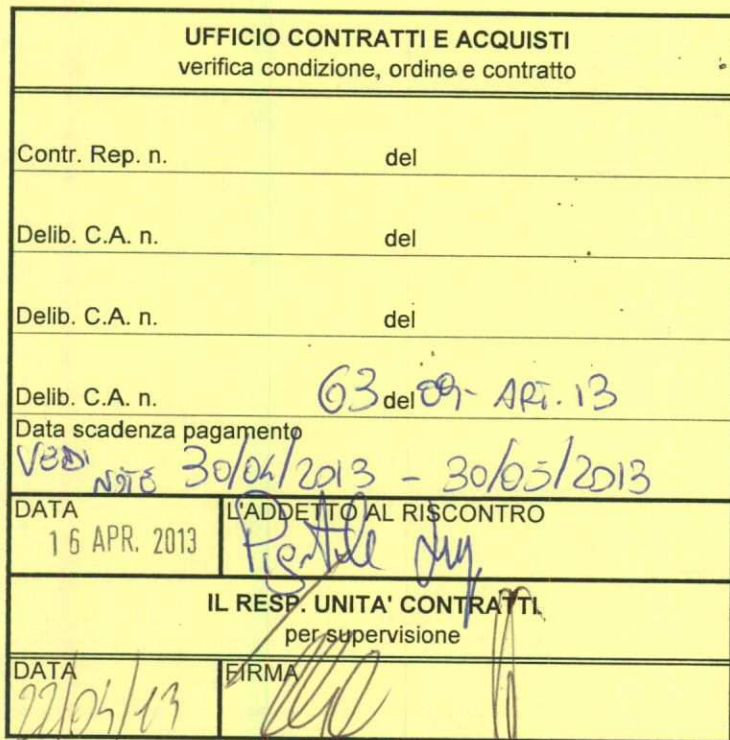 UFFICIO CONTRATTI E ACQUISTI
verifica condizione, ordine e contratto
Contr. Rep. n. del
Delib. C.A. n. del
Delib. C.A. n. del
Delib. C.A. n. 63 del 09- ART. 13
Data scadenza pagamento
VEDI NOTE 30/04/2013 - 30/05/2013
DATA L'ADDETTO AL RISCONTRO
16 APR. 2013
IL RESP. UNITA' CONTRATTI
per supervisione
DATA FIRMA
22/04/13